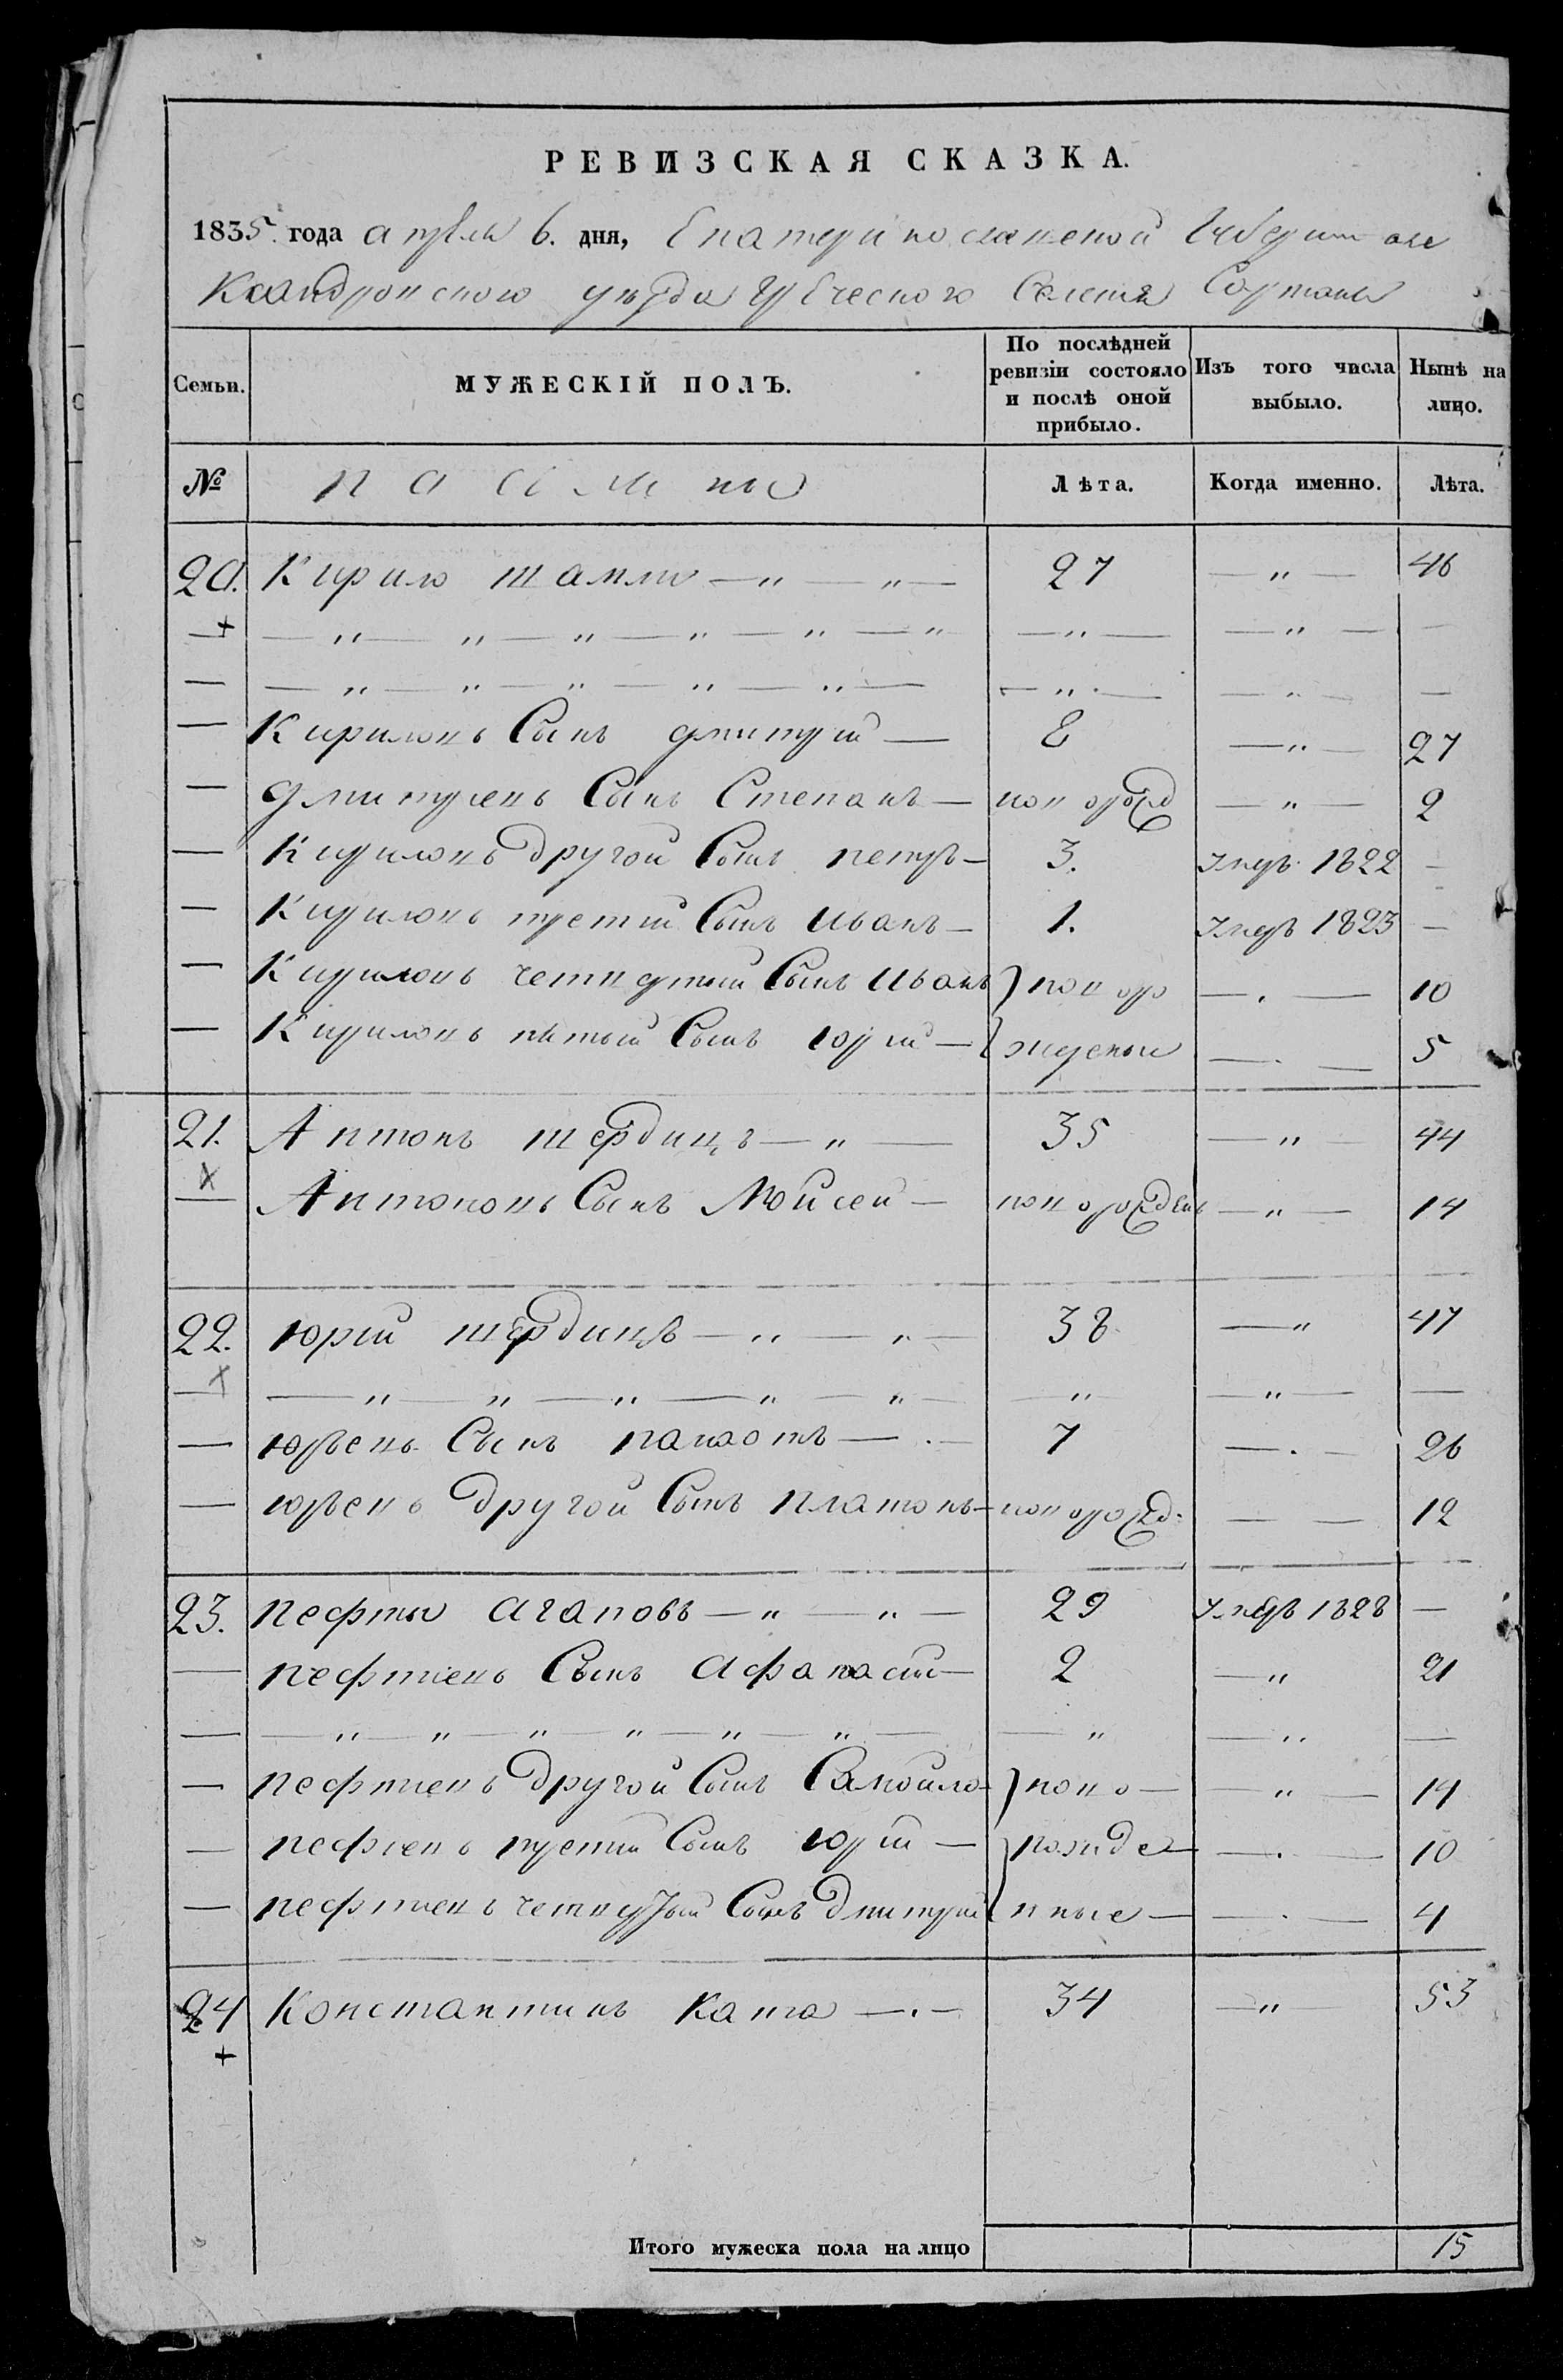 РЕВИЗСКАЯ СКАЗКА.
1835. года апреля 6. дня, Екатеринославской Губернии Але
ксандровского уезда Греческого Селения Сартаны
Семьи.
МУЖЕСКІЙ ПОЛЪ.
По послѣдней ревизіи состояло и послѣ оной прибыло.
Изъ того числа выбыло.
Нынѣ на лицо.
№
Лѣта. Когда именно. Лѣта.
20. Кирило Шамли — „ — „ — 27 — „ — 46
Кириловъ Сынъ Дмитрий — 8 — „ — 27
Дмитриевъ Сынъ Степанъ — новорожд — „ — 2
Кириловъ другой Сынъ петръ — 3. умеръ 1822 —
Кириловъ третий Сынъ Иванъ — 1. умеръ 1823 —
Кириловъ четвертый Сынъ Иванъ } новоро — 10
Кириловъ пятый Сынъ Юрий — } жденые — 5
21. Антонъ — „ — 35 — „ — 44
Антоновъ Сынъ Мойсей — новорожденъ — „ — 14
22. Юрий — „ — „ — 38 — „ 47
Юрьевъ Сынъ панаотъ — . — 7 — . — 26
Юрьевъ другой Сынъ платонъ — новорожд. — — 12
23. Агаповъ — „ — „ — 29 умеръ 1828 —
Сынъ Афанасий — 2 — „ 21
другой Сынъ Самойло — } ново — — „ — 14
третий Сынъ Юрий — } рожде — — . — 10
четвертый Сынъ Дмитрий { нные — — . — 4
24 Константинъ — . — 34 — „ 53
Итого мужеска пола на лицо 15